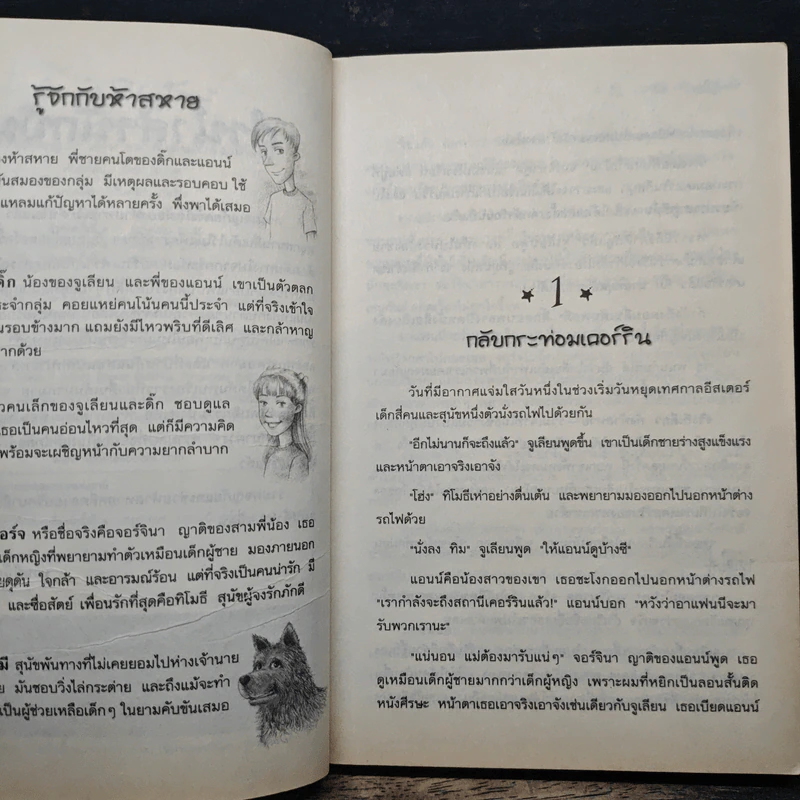 รู้จักกับห้าสหาย
งห้าสหาย พี่ชายคนโตของดิ๊กและแอนน์
นสมองของกลุ่ม มีเหตุผลและรอบคอบ ใช้
แหลมแก้ปัญหาได้หลายครั้ง พึ่งพาได้เสมอ
ดิ๊ก น้องของจูเลียน และพี่ของแอนน์ เขาเป็นตัวตลก
ระจำกลุ่ม คอยแหย่คนโน้นคนนี้ประจำ แต่ที่จริงเข้าใจ
นรอบข้างมาก แถมยังมีไหวพริบที่ดีเลิศ และกล้าหาญ
ากด้วย
วคนเล็กของจูเลียนและดิ๊ก ชอบดูแล
ธอเป็นคนอ่อนไหวที่สุด แต่ก็มีความคิด
พร้อมจะเผชิญหน้ากับความยากลำบาก
อร์จ หรือชื่อจริงคือจอร์จินา ญาติของสามพี่น้อง เธอ
ด็กหญิงที่พยายามทำตัวเหมือนเด็กผู้ชาย มองภายนอก
ยดุดัน ใจกล้า และอารมณ์ร้อน แต่ที่จริงเป็นคนน่ารัก มี
และซื่อสัตย์ เพื่อนรักที่สุดคือทิโมธี สุนัขผู้จงรักภักดี
มี สุนัขพันทางที่ไม่เคยยอมไปห่างเจ้านาย
ย มันชอบวิ่งไล่กระต่าย และถึงแม้จะทำ
เป็นผู้ช่วยเหลือเด็กๆ ในยามคับขันเสมอ
1
กลับกระท่อมเคอร์ริน
วันที่มีอากาศแจ่มใสวันหนึ่งในช่วงเริ่มวันหยุดเทศกาลอีสเตอร์
เด็กสี่คนและสุนัขหนึ่งตัวนั่งรถไฟไปด้วยกัน
"อีกไม่นานก็จะถึงแล้ว" จูเลียนพูดขึ้น เขาเป็นเด็กชายร่างสูงแข็งแรง
และหน้าตาเอาจริงเอาจัง
"โฮ่ง" ทิโมธีเห่าอย่างตื่นเต้น และพยายามมองออกไปนอกหน้าต่าง
รถไฟด้วย
"นั่งลง ทิม" จูเลียนพูด "ให้แอนน์ดูบ้างซี"
แอนน์คือน้องสาวของเขา เธอชะโงกออกไปนอกหน้าต่างรถไฟ
"เรากำลังจะถึงสถานีเคอร์รินแล้ว!" แอนน์บอก "หวังว่าอาแฟนนีจะมา
รับพวกเรานะ"
"แน่นอน แม่ต้องมารับแน่ๆ" จอร์จินา ญาติของแอนน์พูด เธอ
ดูเหมือนเด็กผู้ชายมากกว่าเด็กผู้หญิง เพราะผมที่หยิกเป็นลอนสั้นติด
หนังศีรษะ หน้าตาเธอเอาจริงเอาจังเช่นเดียวกับจูเลียน เธอเบียดแอนน์